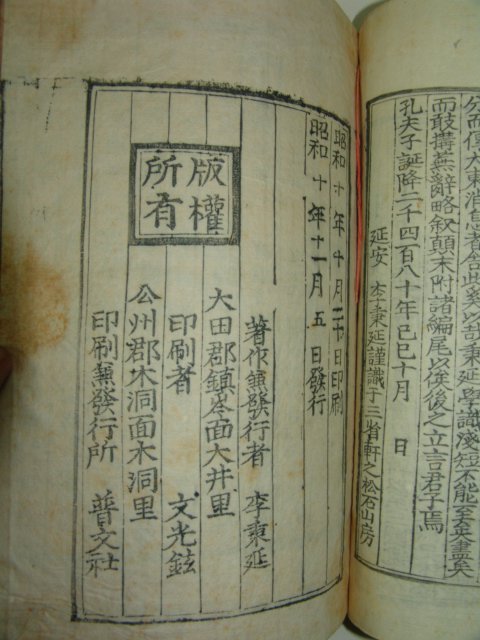 而敢搆蕪辭略敘顛末附諸編尾以俟後之立言君子焉
孔夫子誕降二千四百八十年己巳十月　日
延安　李秉延謹識于三省軒之松石山房
昭和十年十月二十日印刷
昭和十年十一月五日發行
版權所有
著作兼發行者　李秉延
大田郡鎭岑面大井里
印刷者　文光鉉
公州郡木洞面木洞里
印刷兼發行所　普文社